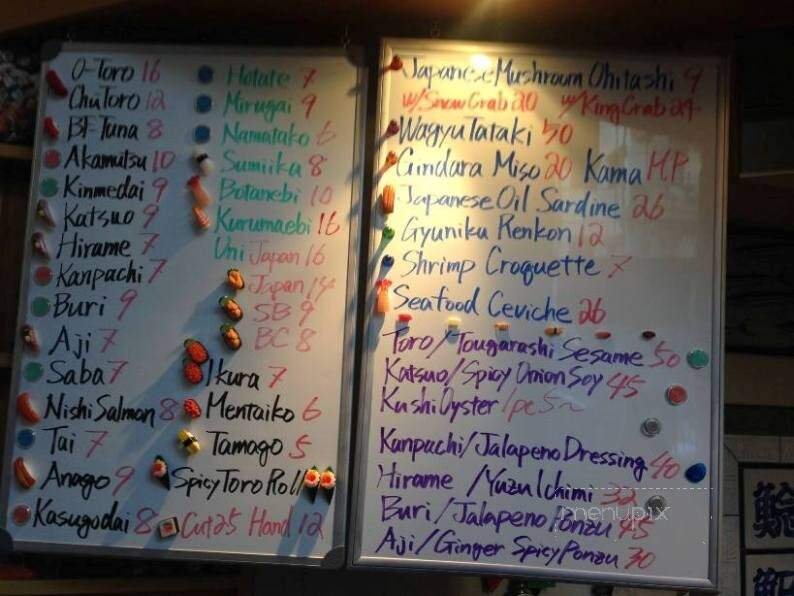 O-Toro 16
ChuToro 12
BF-Tuna 8
Akamutsu 10
Kinmedai 9
Katsuo 9
Hirame 7
Kanpachi 7
Buri 9
Aji 7
Saba 7
Nishi Salmon 8
Tai 7
Anago 9
Kasugodai 8
Hotate 7
Mirugai 9
Namatako 6
Sumiika 8
Botanebi 10
Kurumaebi 16
Uni Japan 16
Japan 14
SB 9
BC 8
Ikura 7
Mentaiko 6
Tamago 5
Spicy Toro Roll
Cut 25 Hand 12
Japanese Mushroom Ohitashi 9
w/Snow Crab 20 w/King Crab 24
Wagyu Tataki 50
Gindara Miso 20 Kama M.P
Japanese Oil Sardine 26
Gyuniku Renkon 12
Shrimp Croquette 7
Seafood Ceviche 26
Toro/Tougarashi Sesame 50
Katsuo/Spicy Onion Soy 45
Kushi Oyster 1pc 5~
Kanpachi/Jalapeno Dressing 40
Hirame /Yuzu Ichimi 32
Buri/Jalapeno Ponzu 45
Aji/Ginger Spicy Ponzu 30
menupix